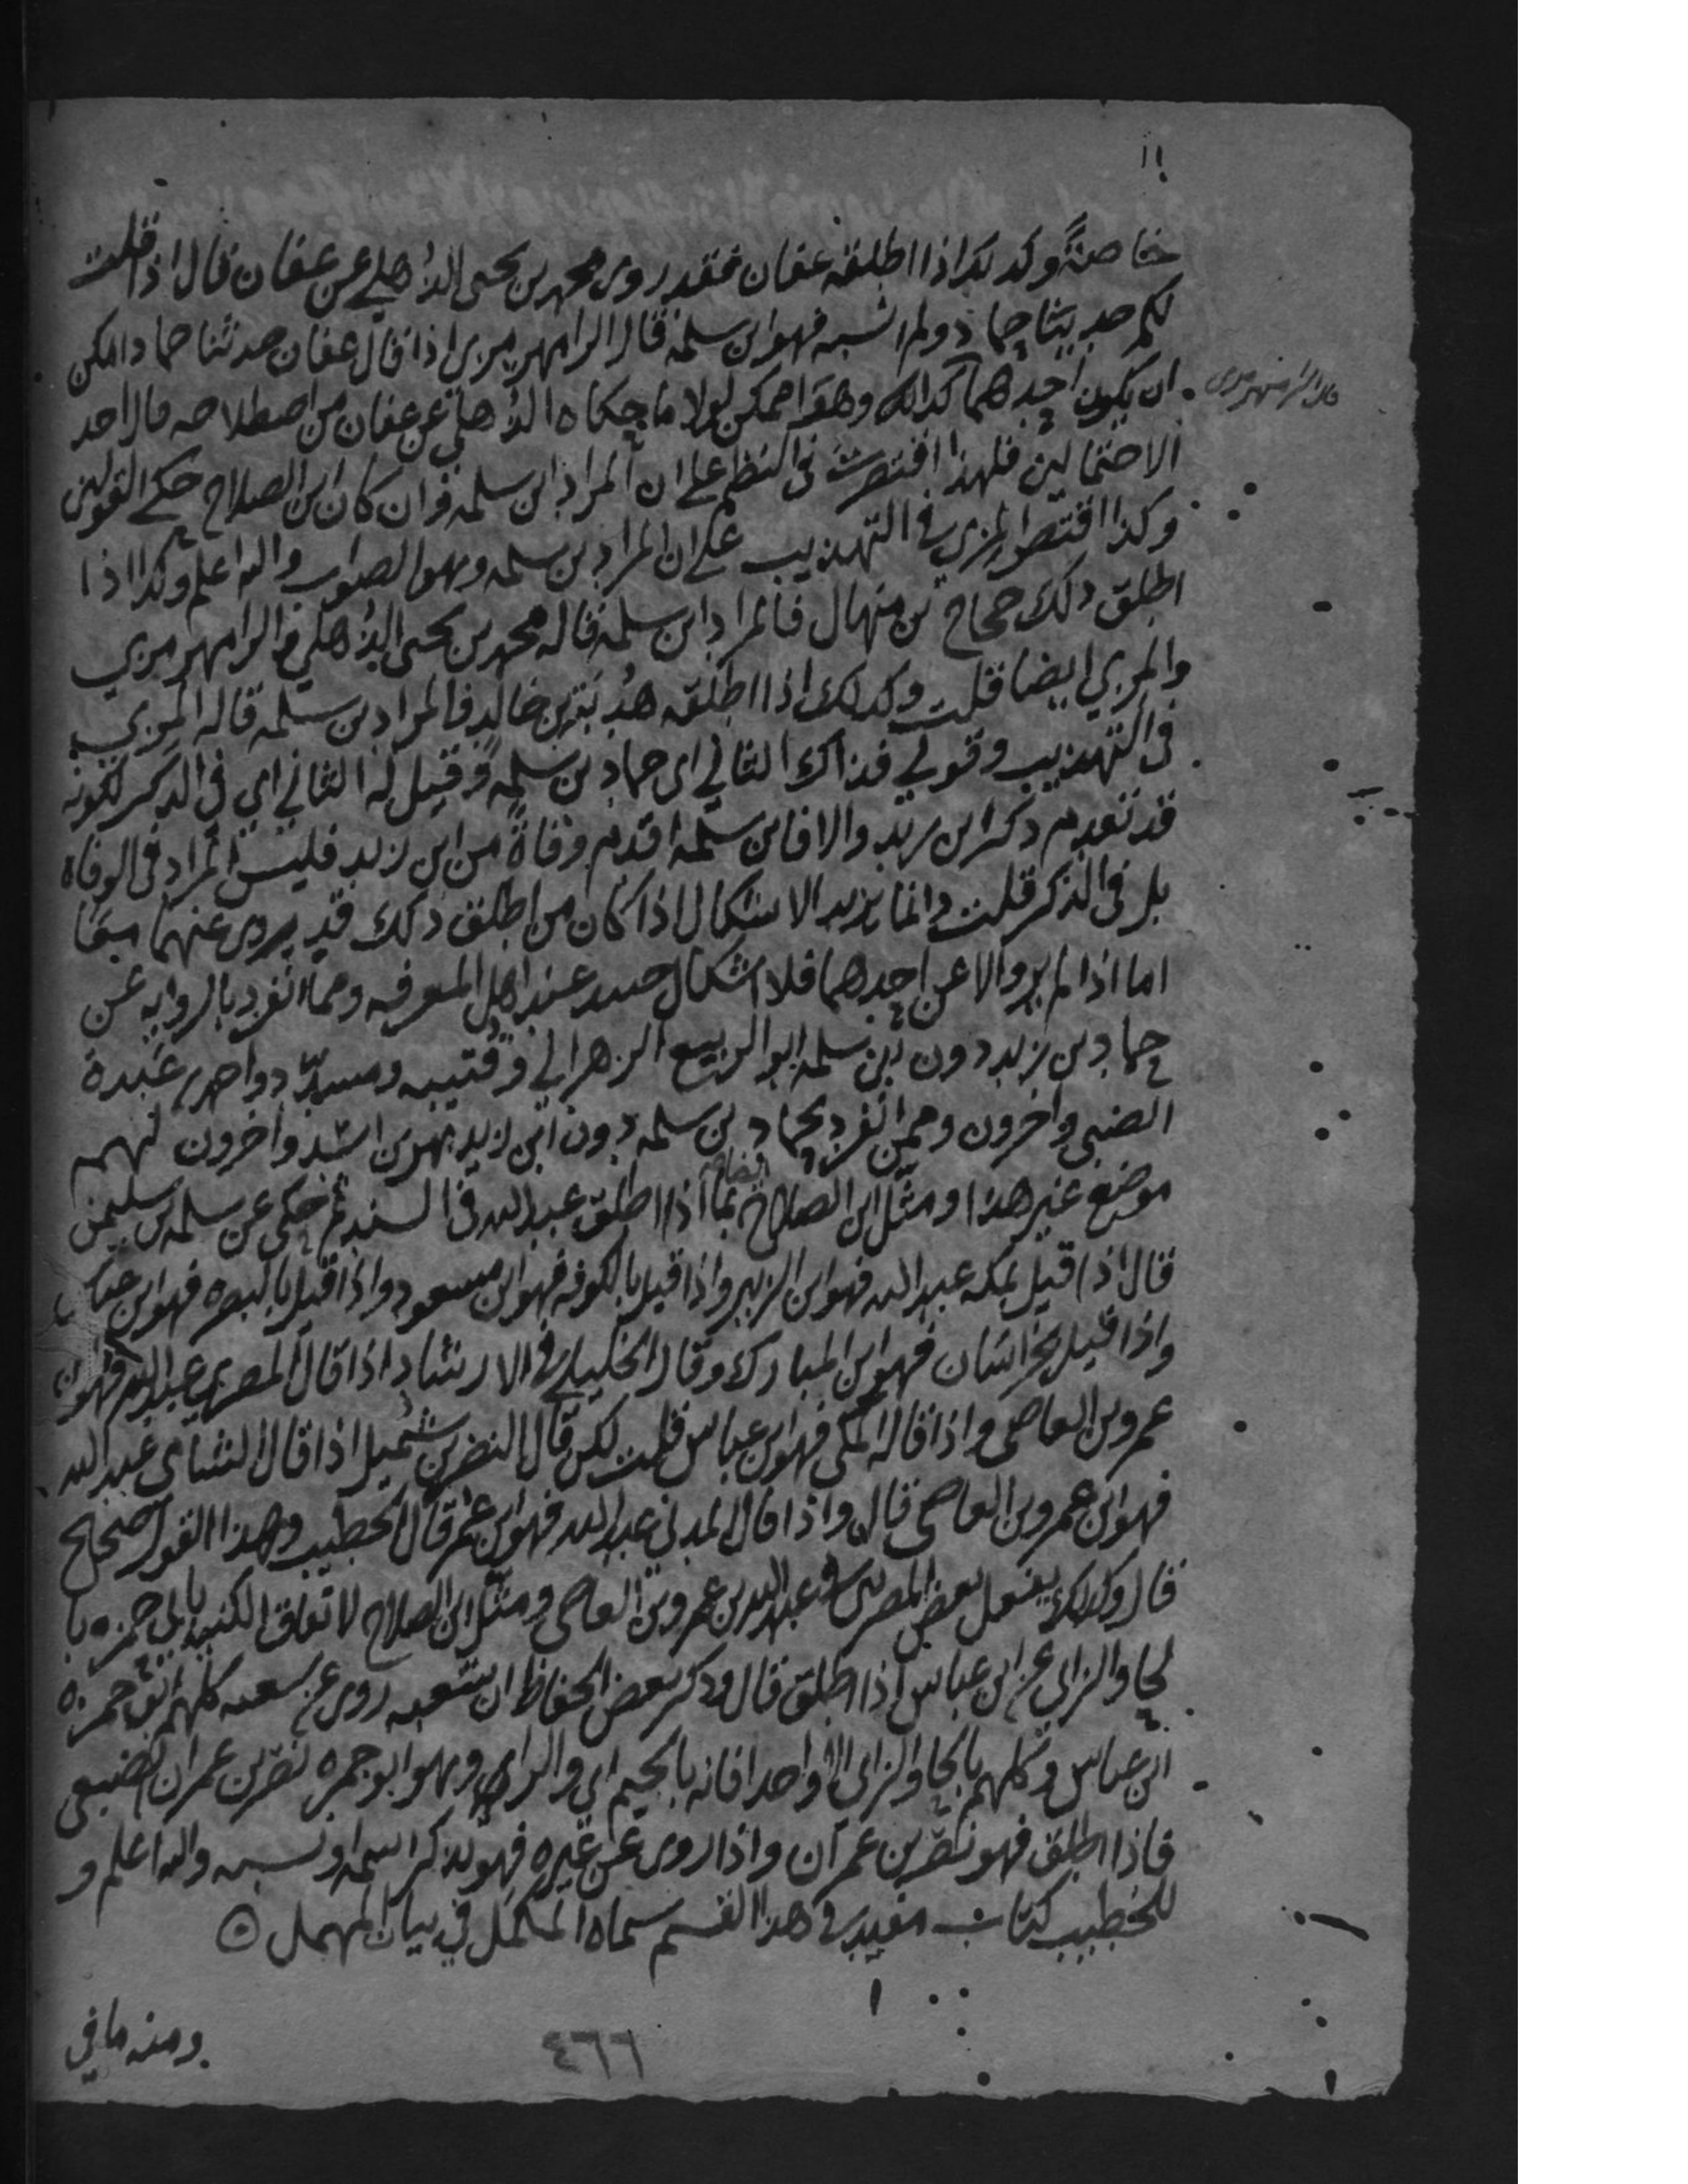 ١١
خاصةً وكذلك اذا اطلقه عفان فقد روى محمد بن يحيى الذُهلي عن عفان قال اذا قلت
لكم حدثنا حماد ولم انسبه فهو ابن سلمة قال الرامهرمزي اذا قال عفان حدثنا حماد امكن
ان يكون احدهما كذا قال وهو ممكن لولا ما حكاه الذُهلي عن عفان من اصطلاحه فزال احد
قال الرامهرمزي
الاحتمالين فلهذا اقتصرت في النظم على ان المراد ابن سلمه وان كان ابن الصلاح حكى القولين
وكذا اقتصر المزي في التهذيب على ان المراد بن سلمه وهو الصواب والله اعلم وكذا اذا
اطلق ذلك حجاج بن منهال فالمراد ابن سلمة قاله محمد بن يحيى الذُهلي والرامهرمزي
والمزي ايضا قلت وكذلك اذا اطلقه هُدبَة بن خالد فالمراد بن سلمه قاله المزي
في التهذيب وقولي فذاك الثاني اي حماد بن سلمة وقيل له الثاني اي في الذكر لكونه
قد تقدم ذكر ابن زيد والا فابن سلمة اقدم وفاةً من ابن زيد فليس المراد في الوفاه
بل في الذكر قلت وانما يزيد الاشكال اذا كان من اطلق ذلك قد يروى عنهما معًا
اما اذا لم يرو الا عن احدهما فلا اشكال حينئذ عند اهل المعرفه وممن انفرد بالروايه عن
حماد بن زيد دون بن سلمه ابو الربيع الزهراني وقتيبه ومسدّد واحمد بن عَبدة
الضبي واخرون وممن انفرد بحماد بن سلمه دون ابن زيد بهز بن اسد واخرون لهم
موضع غير هذا ومثل ابن الصلاح ايضا بما اذا اطلق عبد الله في السند ثم حكى عن سلمه بن سليمن
قال اذا قيل بمكه عبد الله فهو ابن الزبير واذا قيل بالكوفه فهو ابن مسعود واذا قيل بالبصره فهو ابن عباس
واذا قيل بخراسان فهو ابن المبارك وقال الخليلي في الارشاد اذا قال المصري عبد الله فهو ابن
عمرو بن العاصي واذا قاله المكي فهو ابن عباس قلت لكن قال النضر بن شُميل اذا قال الشامي عبد الله
فهو ابن عمرو بن العاصي قال واذا قال المدني عبد الله فهو ابن عمر قال الخطيب وهذا القول صحيح
قال وكذلك يفعل بعض المصريين في عبد الله بن عمرو بن العاصي ومثل ابن الصلاح لاتفاق الكنيه بابي حمزه با
لحا والزاي عن ابن عباس اذا اطلق قال وذكر بعض الحفاظ ان شعبه روى عن سبعه كلهم ابو حمزه
ابن عباس وكلهم بالحا والزاي الا واحدا فانه بالجيم اي والراي وهو ابو جمره نصر بن عمران الضبعي
فاذا اطلق فهو نصر بن عمران واذا روى عن غيره فهو يذكر اسمه او نسبه والله اعلم و
للخطيب كتاب مفيد في هذا القسم سماه المكمل في بيان المهمل
ومنه ما في
٤٦٦